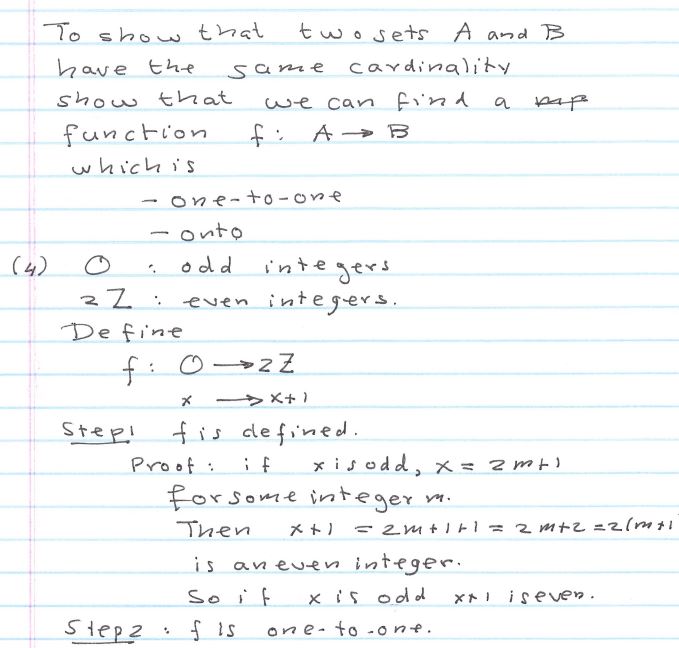 To show that two sets A and B
have the same cardinality
show that we can find a
function f: A → B
which is
- one-to-one
- onto
(4) O : odd integers
2Z : even integers.
Define
f: O → 2Z
x → x+1
Step1 f is defined.
Proof: if x is odd, x = 2m+1
for some integer m.
Then x+1 = 2m+1+1 = 2m+2 = 2(m+1
is an even integer.
So if x is odd x+1 is even.
Step2 : f is one-to-one.